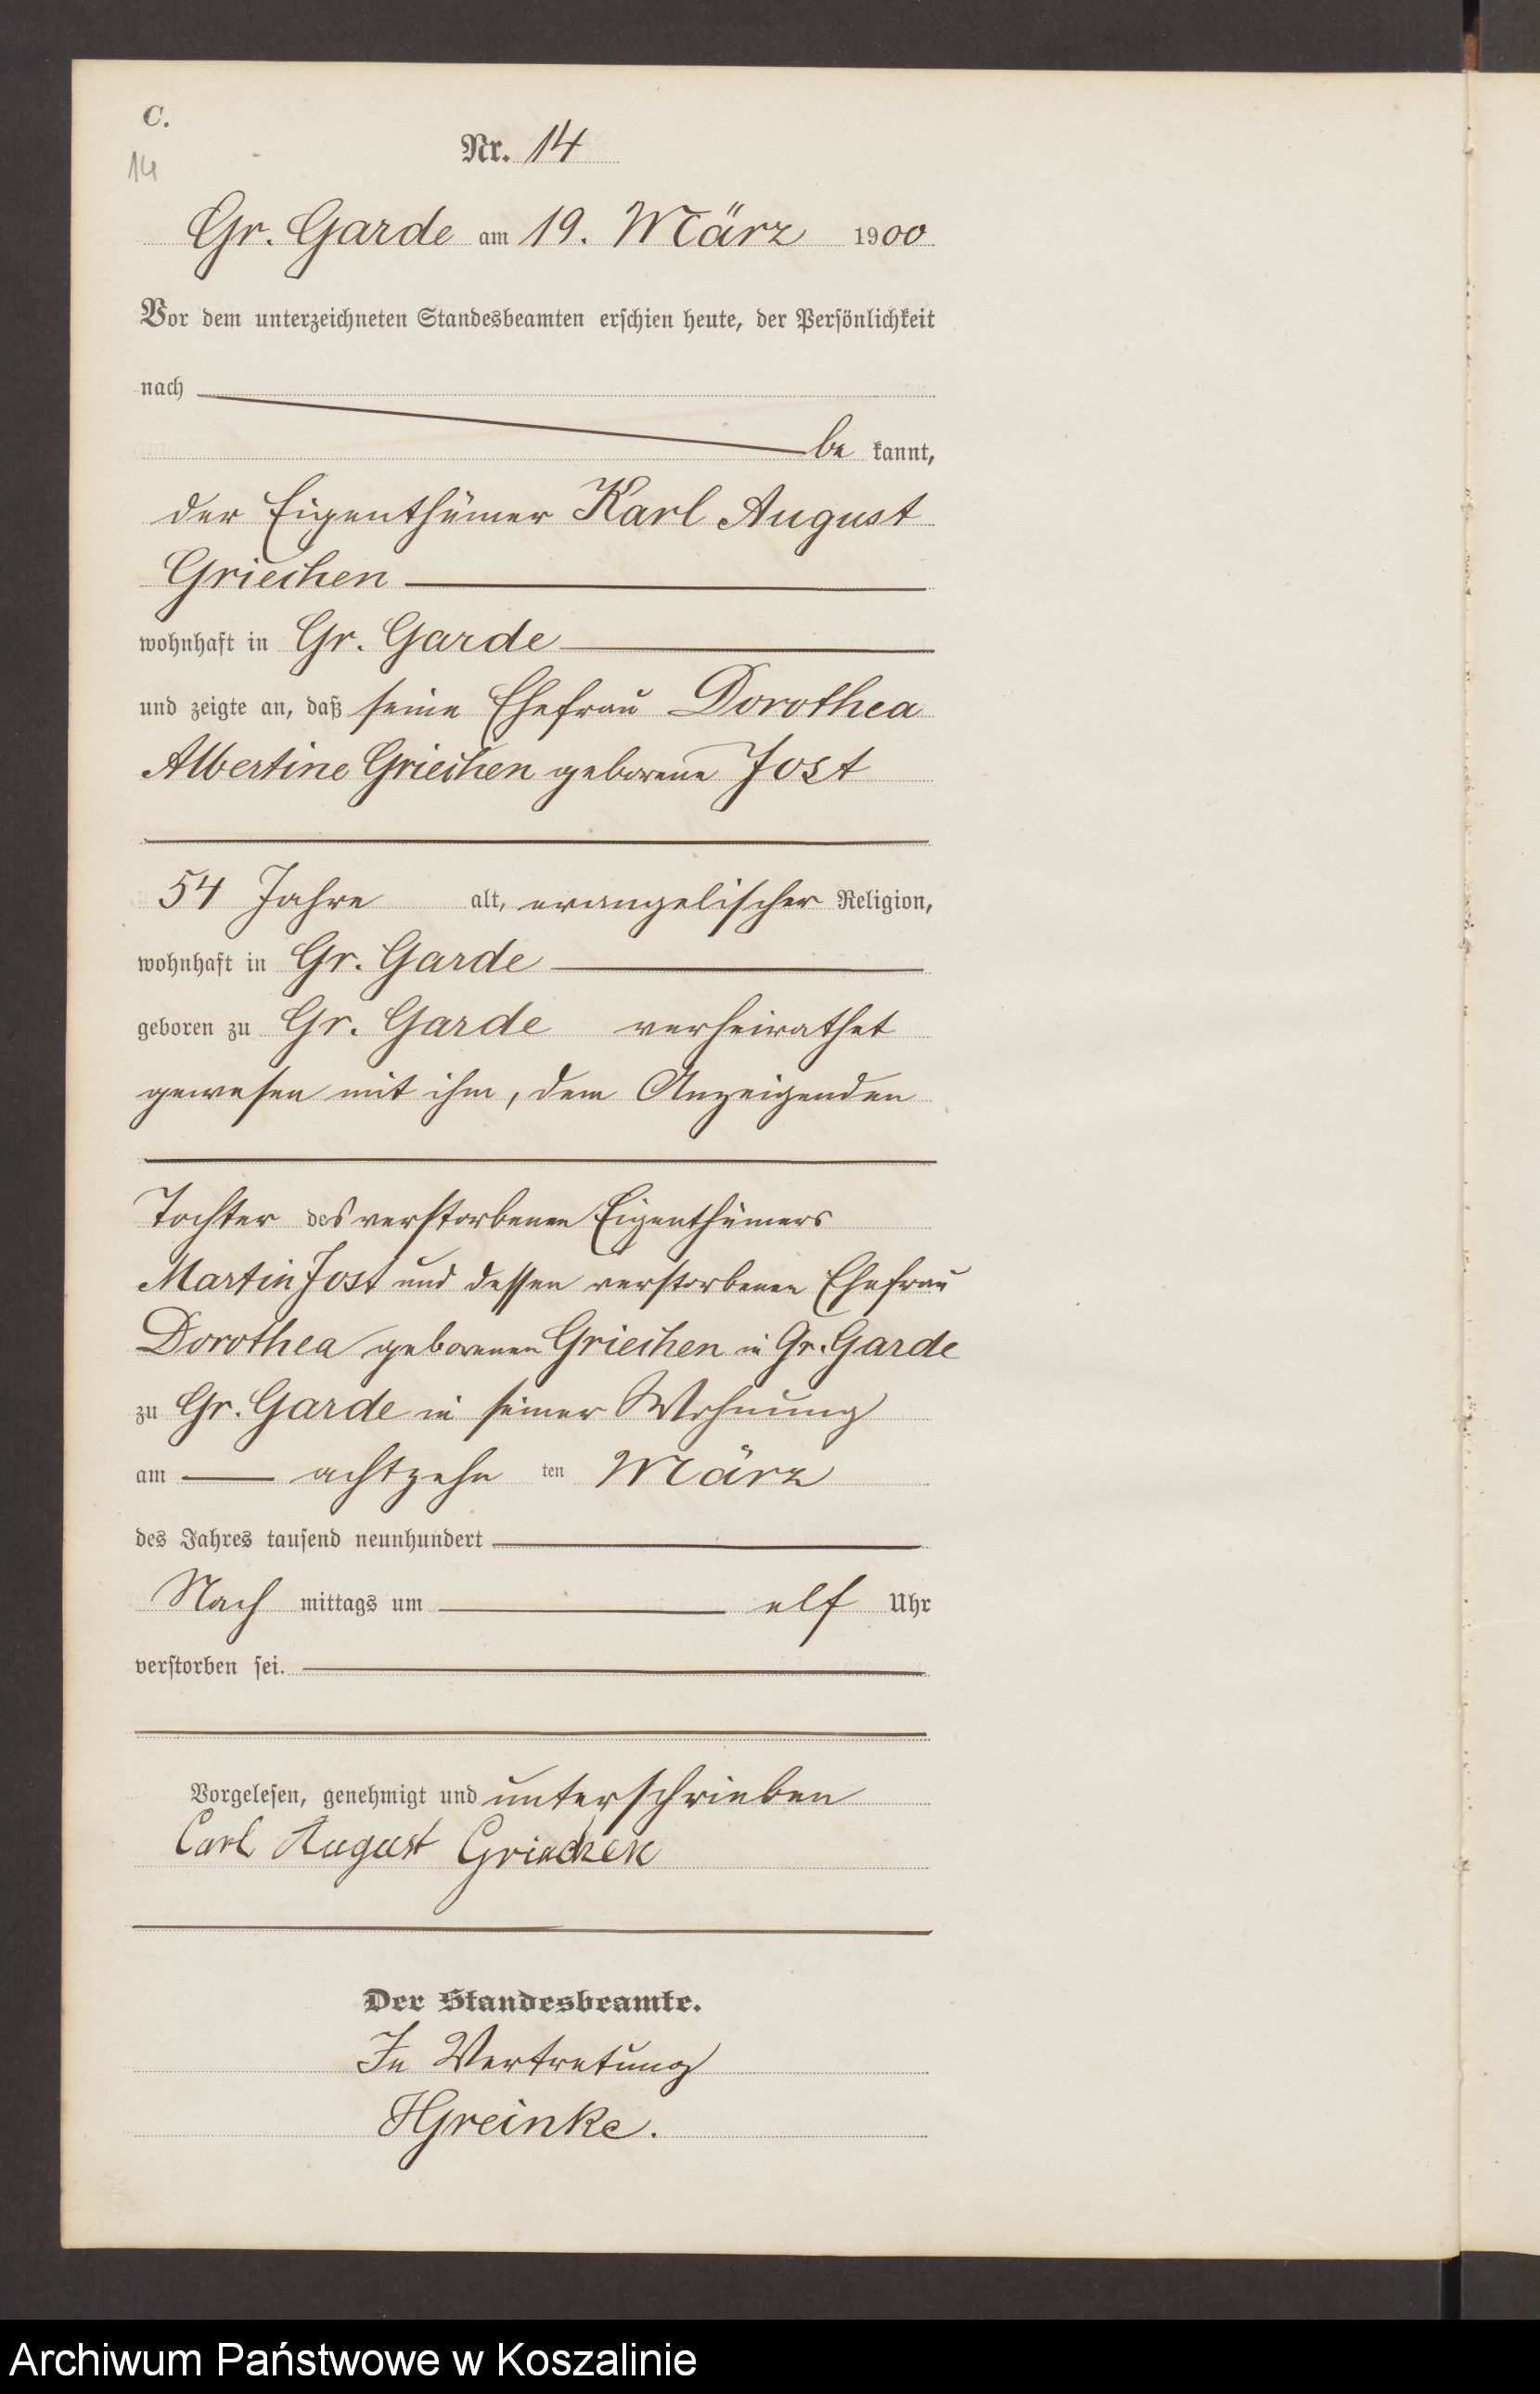 C.
14
Nr. 14
Gr. Garde am 19. März 1900
Vor dem unterzeichneten Standesbeamten erschien heute, der Persönlichkeit
nach
be kannt,
der Eigenthümer Karl August
Griechen
wohnhaft in Gr. Garde
und zeigte an, daß seine Ehefrau Dorothea
Albertine Griechen geborene Jost
54 Jahre alt, evangelischer Religion,
wohnhaft in Gr. Garde
geboren zu Gr. Garde verheirathet
gewesen mit ihm, dem Anzeigenden
Tochter des verstorbenen Eigenthümers
Martin Jost und dessen verstorbenen Ehefrau
Dorothea geborenen Griechen in Gr. Garde
zu Gr. Garde in seiner Wohnung
am achtzehn ten März
des Jahres tausend neunhundert
Nach mittags um elf Uhr
verstorben sei.
Vorgelesen, genehmigt und unterschrieben
Carl August Griechen
Der Standesbeamte.
In Vertretung
HGreinke.
Archiwum Państwowe w Koszalinie